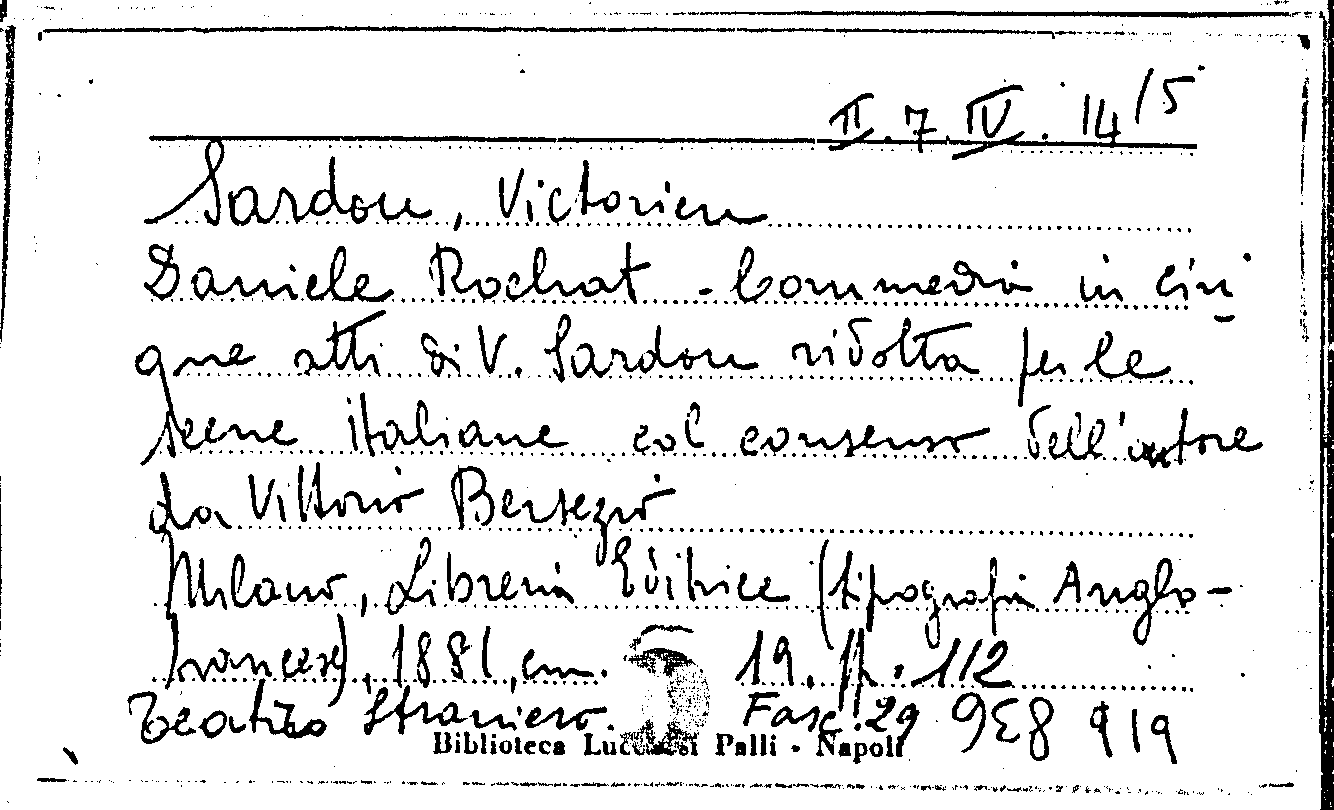 II.7.IV.14/5
Sardou, Victorien
Daniele Rochat - Commedia in cin
que atti di V. Sardou ridotta per le
scene italiane col consenso dell'autore
da Vittorio Bersezio
Milano, Libreria Editrice (tipografia Anglo-
francese), 1881, cm. 19. pp. 112
Teatro Straniero. Fasc. 29 958 919
Biblioteca Lucchesi Palli - Napoli